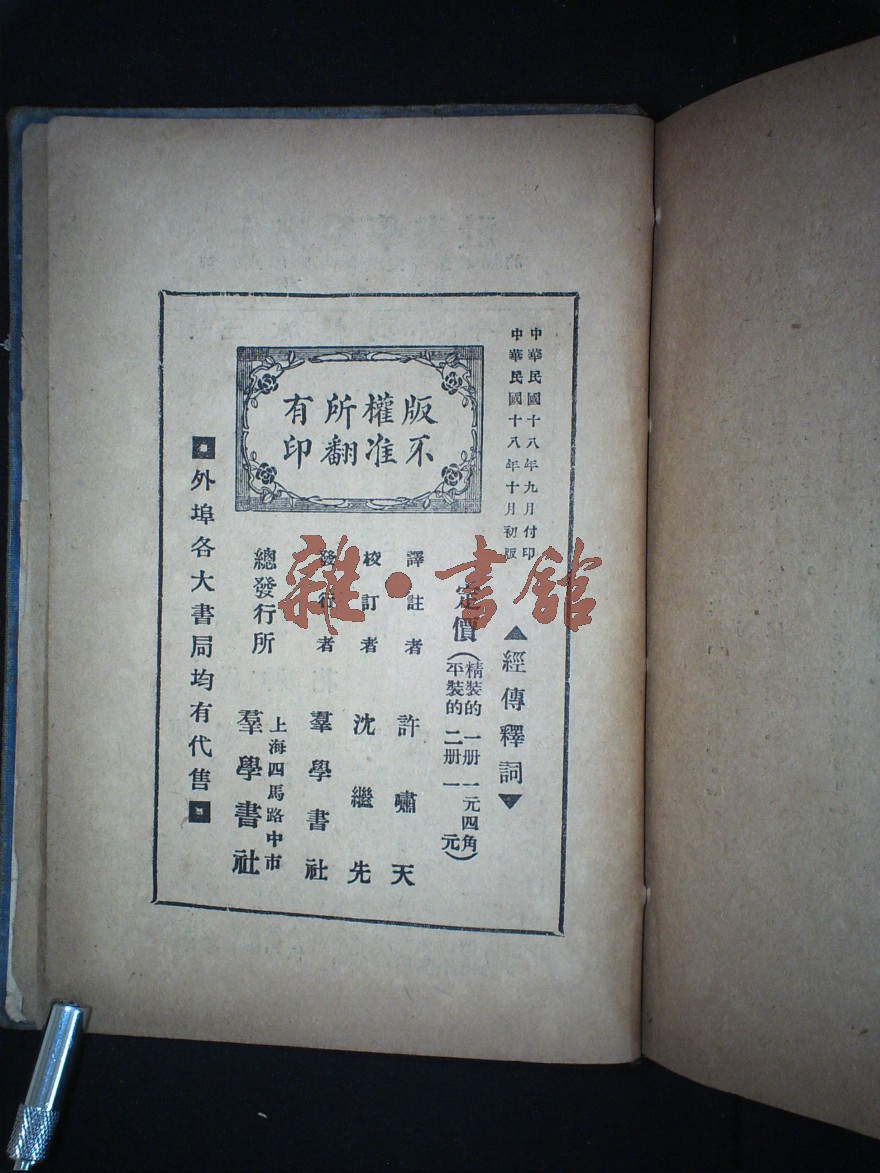 中華民國十八年九月付印
中華民國十八年十月初版
經傳釋詞
定價(精裝的一册一元四角
平裝的二册一元)
版權所有
不准翻印
譯註者 許嘯天
校訂者 沈繼先
發行者 羣學書社
總發行所 上海四馬路中市
羣學書社
外埠各大書局均有代售
雜·書館